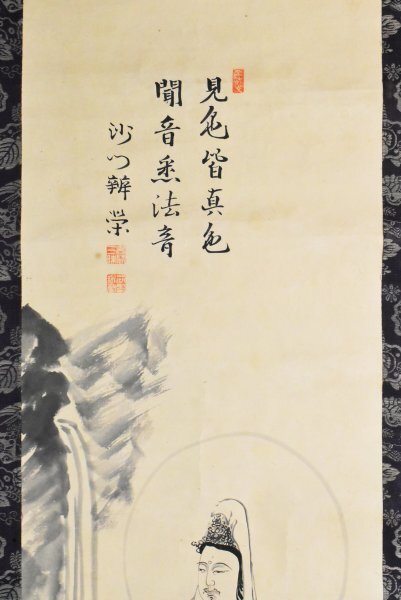 見色皆真色
聞音悉法音
沙門辨榮